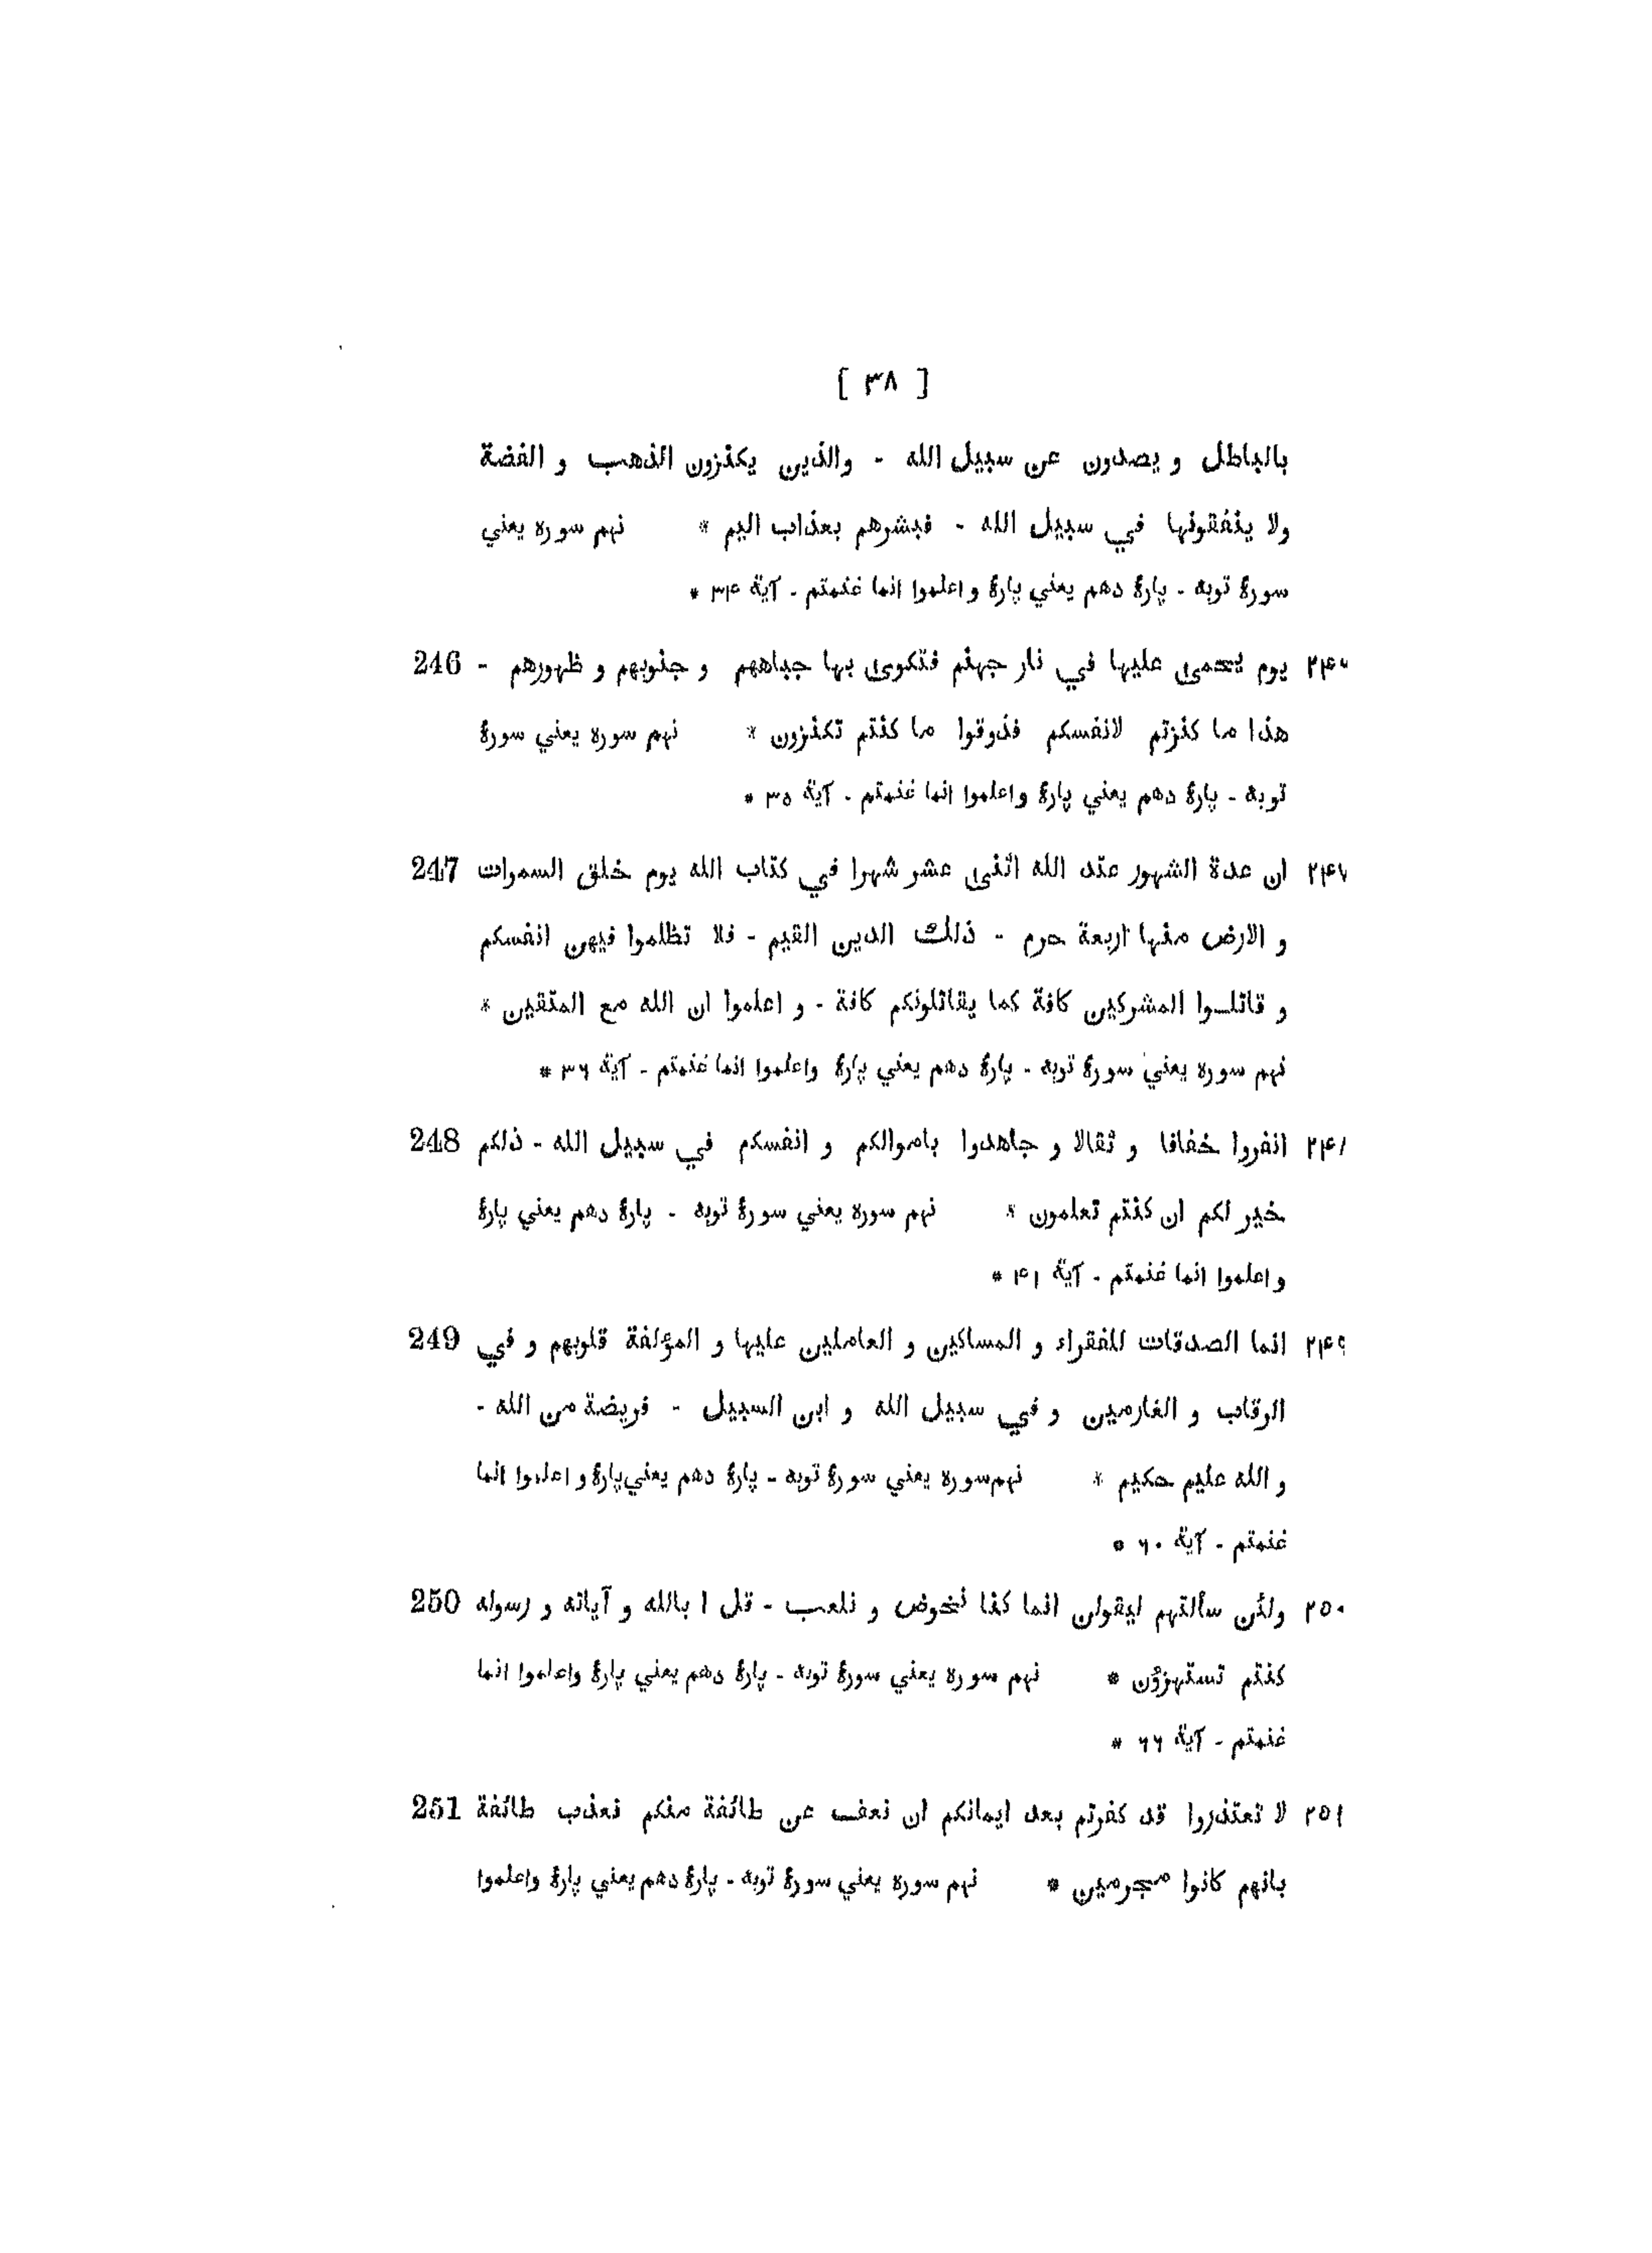 [ ٣٨ ]
بالباطل و يصدون عن سبيل الله - والذين يكنزون الذهب و الفضة
ولا ينفقونها في سبيل الله - فبشرهم بعذاب اليم * نهم سوره يعني
سورۀ توبه - پارۀ دهم يعني پارۀ و اعلموا انما غنمتم - آيۀ ٣۴ *
يوم يحمى عليها في نار جهنم فتكوى بها جباههم و جنوبهم و ظهورهم - 246
هذا ما كنزتم لانفسكم فذوقوا ما كنتم تكنزون * نهم سوره يعني سورۀ
توبه - پارۀ دهم يعني پارۀ واعلموا انما غنمتم - آيۀ ٣٥ *
٢۴٧ ان عدة الشهور عند الله اثنى عشر شهرا في كتاب الله يوم خلق السموات 247
و الارض منها اربعة حرم - ذلك الدين القيم - فلا تظلموا فيهن انفسكم
و قاتلوا المشركين كافة كما يقاتلونكم كافة - و اعلموا ان الله مع المتقين *
نهم سوره يعني سورۀ توبه - پارۀ دهم يعني پارۀ واعلموا انما غنمتم - آيۀ ٣٦ *
انفروا خفافا و ثقالا و جاهدوا باموالكم و انفسكم في سبيل الله - ذلكم 248
خير لكم ان كنتم تعلمون * نهم سوره يعني سورۀ توبه - پارۀ دهم يعني پارۀ
و اعلموا انما غنمتم - آيۀ ۴١ *
٢۴٩ انما الصدقات للفقراء و المساكين و العاملين عليها و المؤلفة قلوبهم و في 249
الرقاب و الغارمين و في سبيل الله و ابن السبيل - فريضة من الله -
و الله عليم حكيم * نهم سوره يعني سورۀ توبه - پارۀ دهم يعني پارۀ و اعلموا انما
غنمتم - آيۀ ٦٠ *
٢٥٠ ولئن سألتهم ليقولن انما كنا نخوض و نلعب - قل ا بالله و آياته و رسوله 250
كنتم تستهزؤن * نهم سوره يعني سورۀ توبه - پارۀ دهم يعني پارۀ واعلموا انما
غنمتم - آيۀ ٦٦ *
٢٥١ لا تعتذروا قد كفرتم بعد ايمانكم ان نعف عن طائفة منكم نعذب طائفة 251
بانهم كانوا مجرمين * نهم سوره يعني سورۀ توبه - پارۀ دهم يعني پارۀ واعلموا